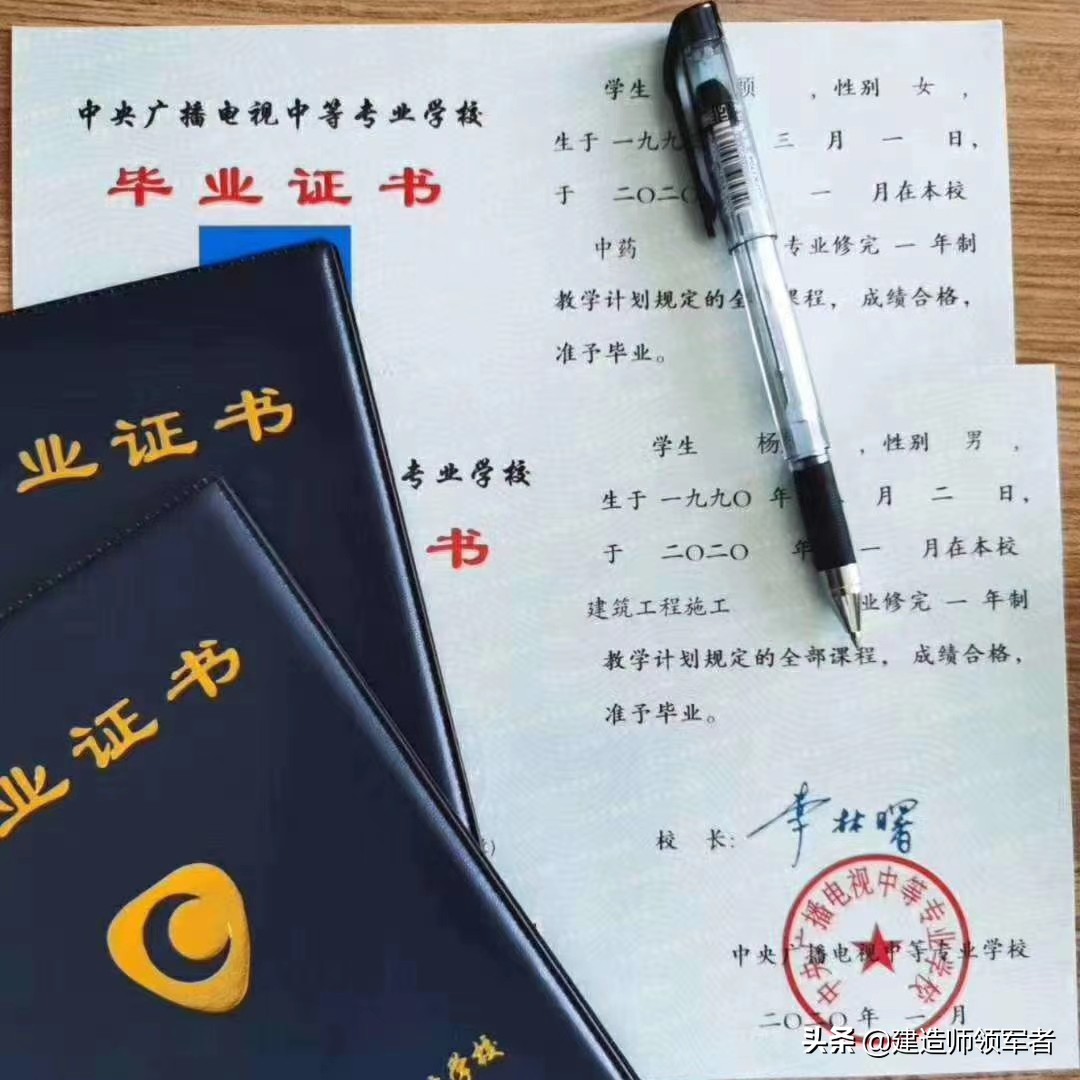 中央广播电视中等专业学校
毕业证书
学生 ，性别 女 ，
生于 一九九 三 月 一 日，
于 二〇二〇 一 月在本校
中药 专业修完 一 年制
教学计划规定的全 课程， 成绩合格，
准予毕业。
专业学校
书
学生 杨 ，性别 男 ，
生于 一九九〇 年 月 二 日，
于 二〇二〇 年 一 月在本校
建筑工程施工 业修完 一 年制
教学计划规定的全部课程， 成绩合格，
准予毕业。
校 长： 李林曙
中央广播电视中等专业学校
二〇二〇 年 一 月
中央广播电视中等专业学校
业证书
业证书
学校
头条 @建造师领军者